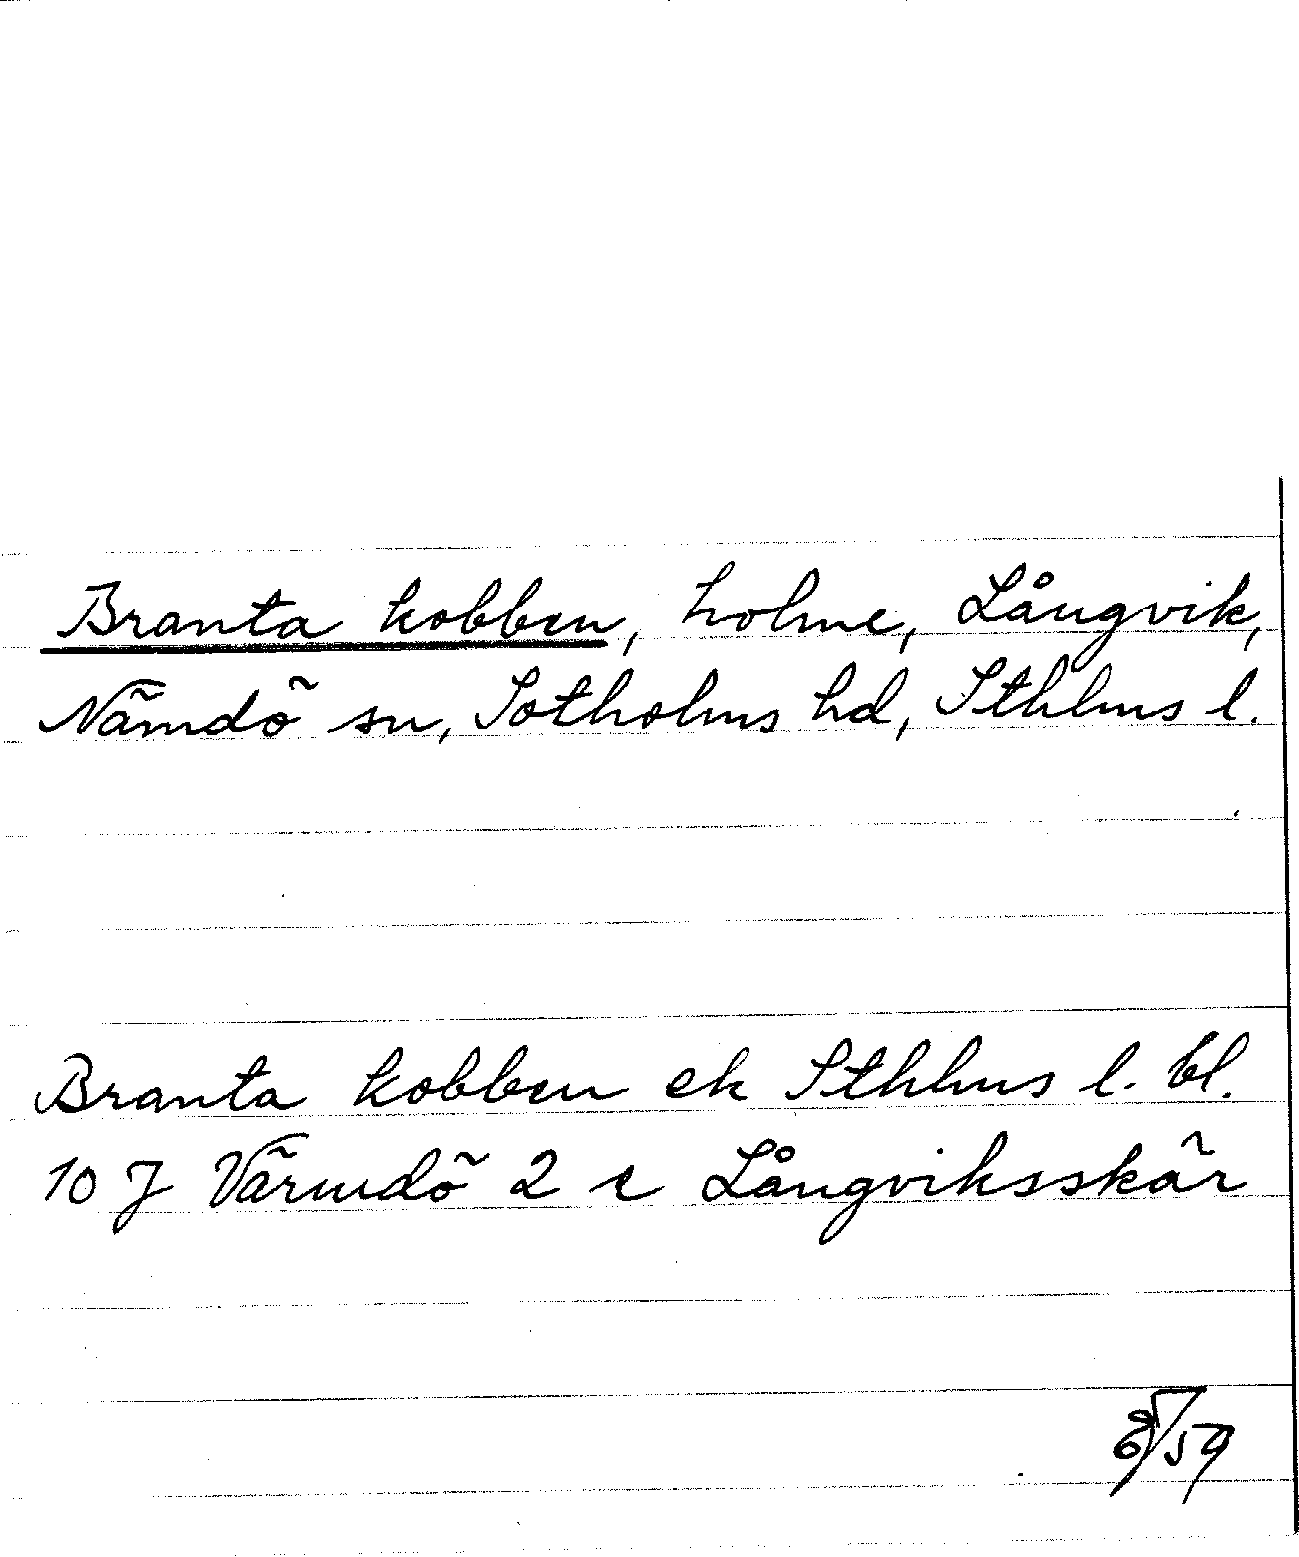 Branta kobben, holme, Långvik,
Nämdö sn, Sotholms hd, Sthlms l.
Branta kobben ek Sthlms l. bl.
10 J Värmdö 2 c Långviksskär